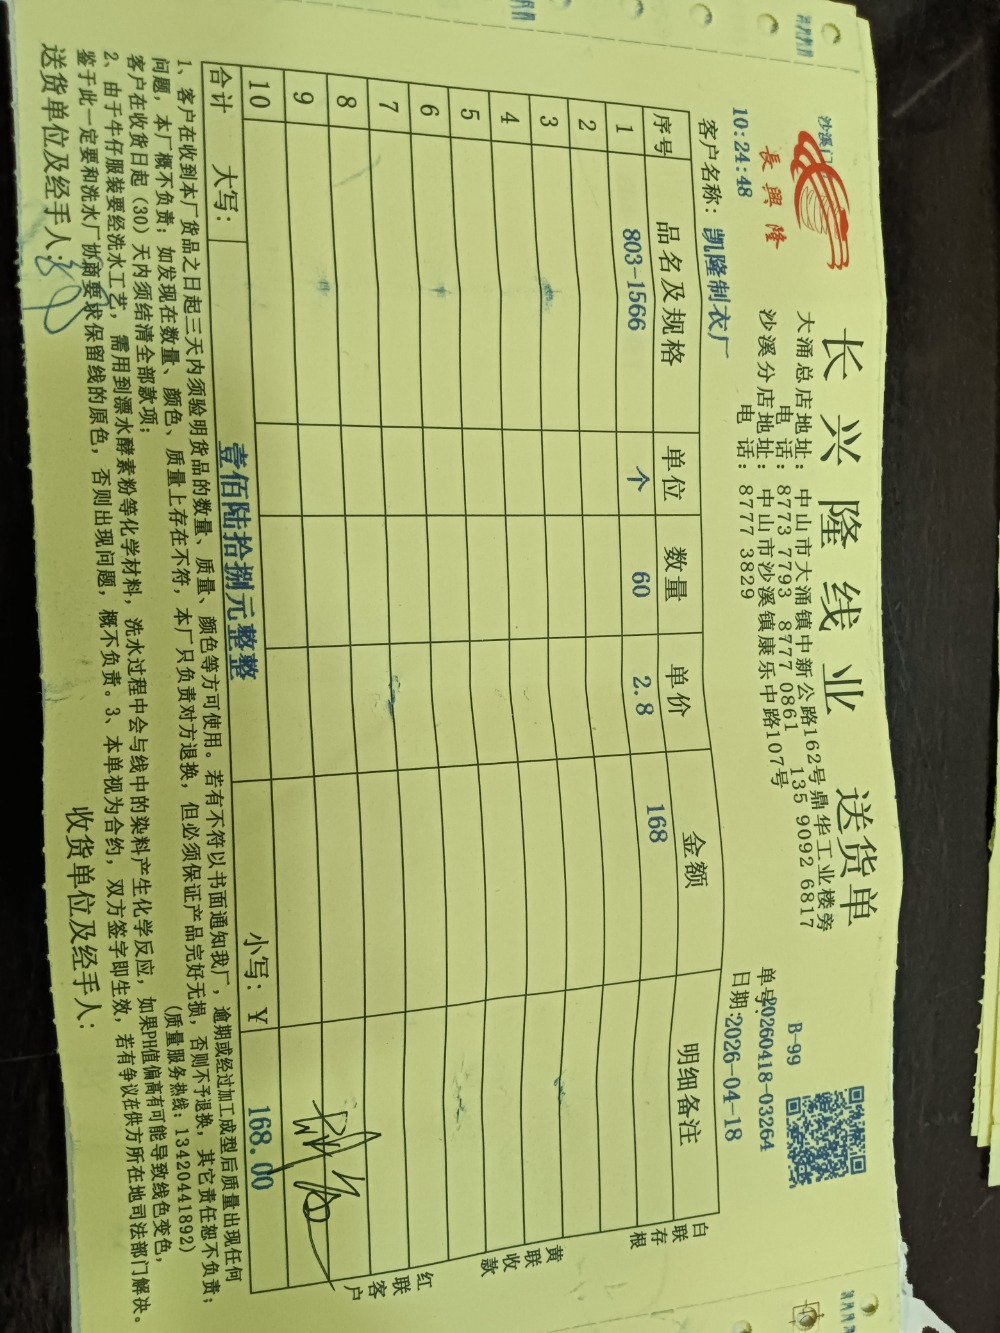 沙溪门
長興隆
10:24:48
长兴隆线业 送货单
大涌总店地址：中山市大涌镇中新公路162号鼎华工业楼旁
电 话：8773 7793 8777 0861 135 9092 6817
沙溪分店地址：中山市沙溪镇康乐中路107号
电 话：8777 3829
B-99
单号:20260418-03264
日期:2026-04-18
客户名称：凯隆制衣厂
序号 品名及规格 单位 数量 单价 金额 明细备注
1 803-1566 个 60 2.8 168
2
3
4
5
6
7
8
9
10
合计 大写：壹佰陆拾捌元整整 小写：￥ 168.00
白联存根
黄联收款
红联客户
1、客户在收到本厂货品之日起三天内须验明货品的数量、质量、颜色等方可使用。若有不符以书面通知我厂，逾期或经过加工成型后质量出现任何
问题，本厂概不负责；如发现在数量、颜色、质量上存在不符，本厂只负责对方退换，但必须保证产品完好无损，否则不予退换，其它责任恕不负责；
客户在收货日起（30）天内须结清全部款项； (质量服务热线：13420441892)
2、由于牛仔服装要经洗水工艺，需用到漂水酵素粉等化学材料，洗水过程中会与线中的染料产生化学反应，如果PH值偏高有可能导致线色变色，
鉴于此一定要和洗水厂协商要求保留线的原色，否则出现问题，概不负责。3、本单视为合约，双方签字即生效，若有争议在供方所在地司法部门解决。
送货单位及经手人： 收货单位及经手人：